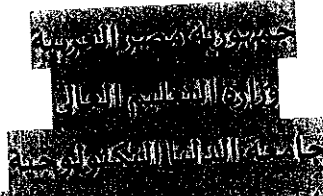 جمهورية مصر العربية
وزارة التعليم العالى
جامعة الدلتا التكنولوجية